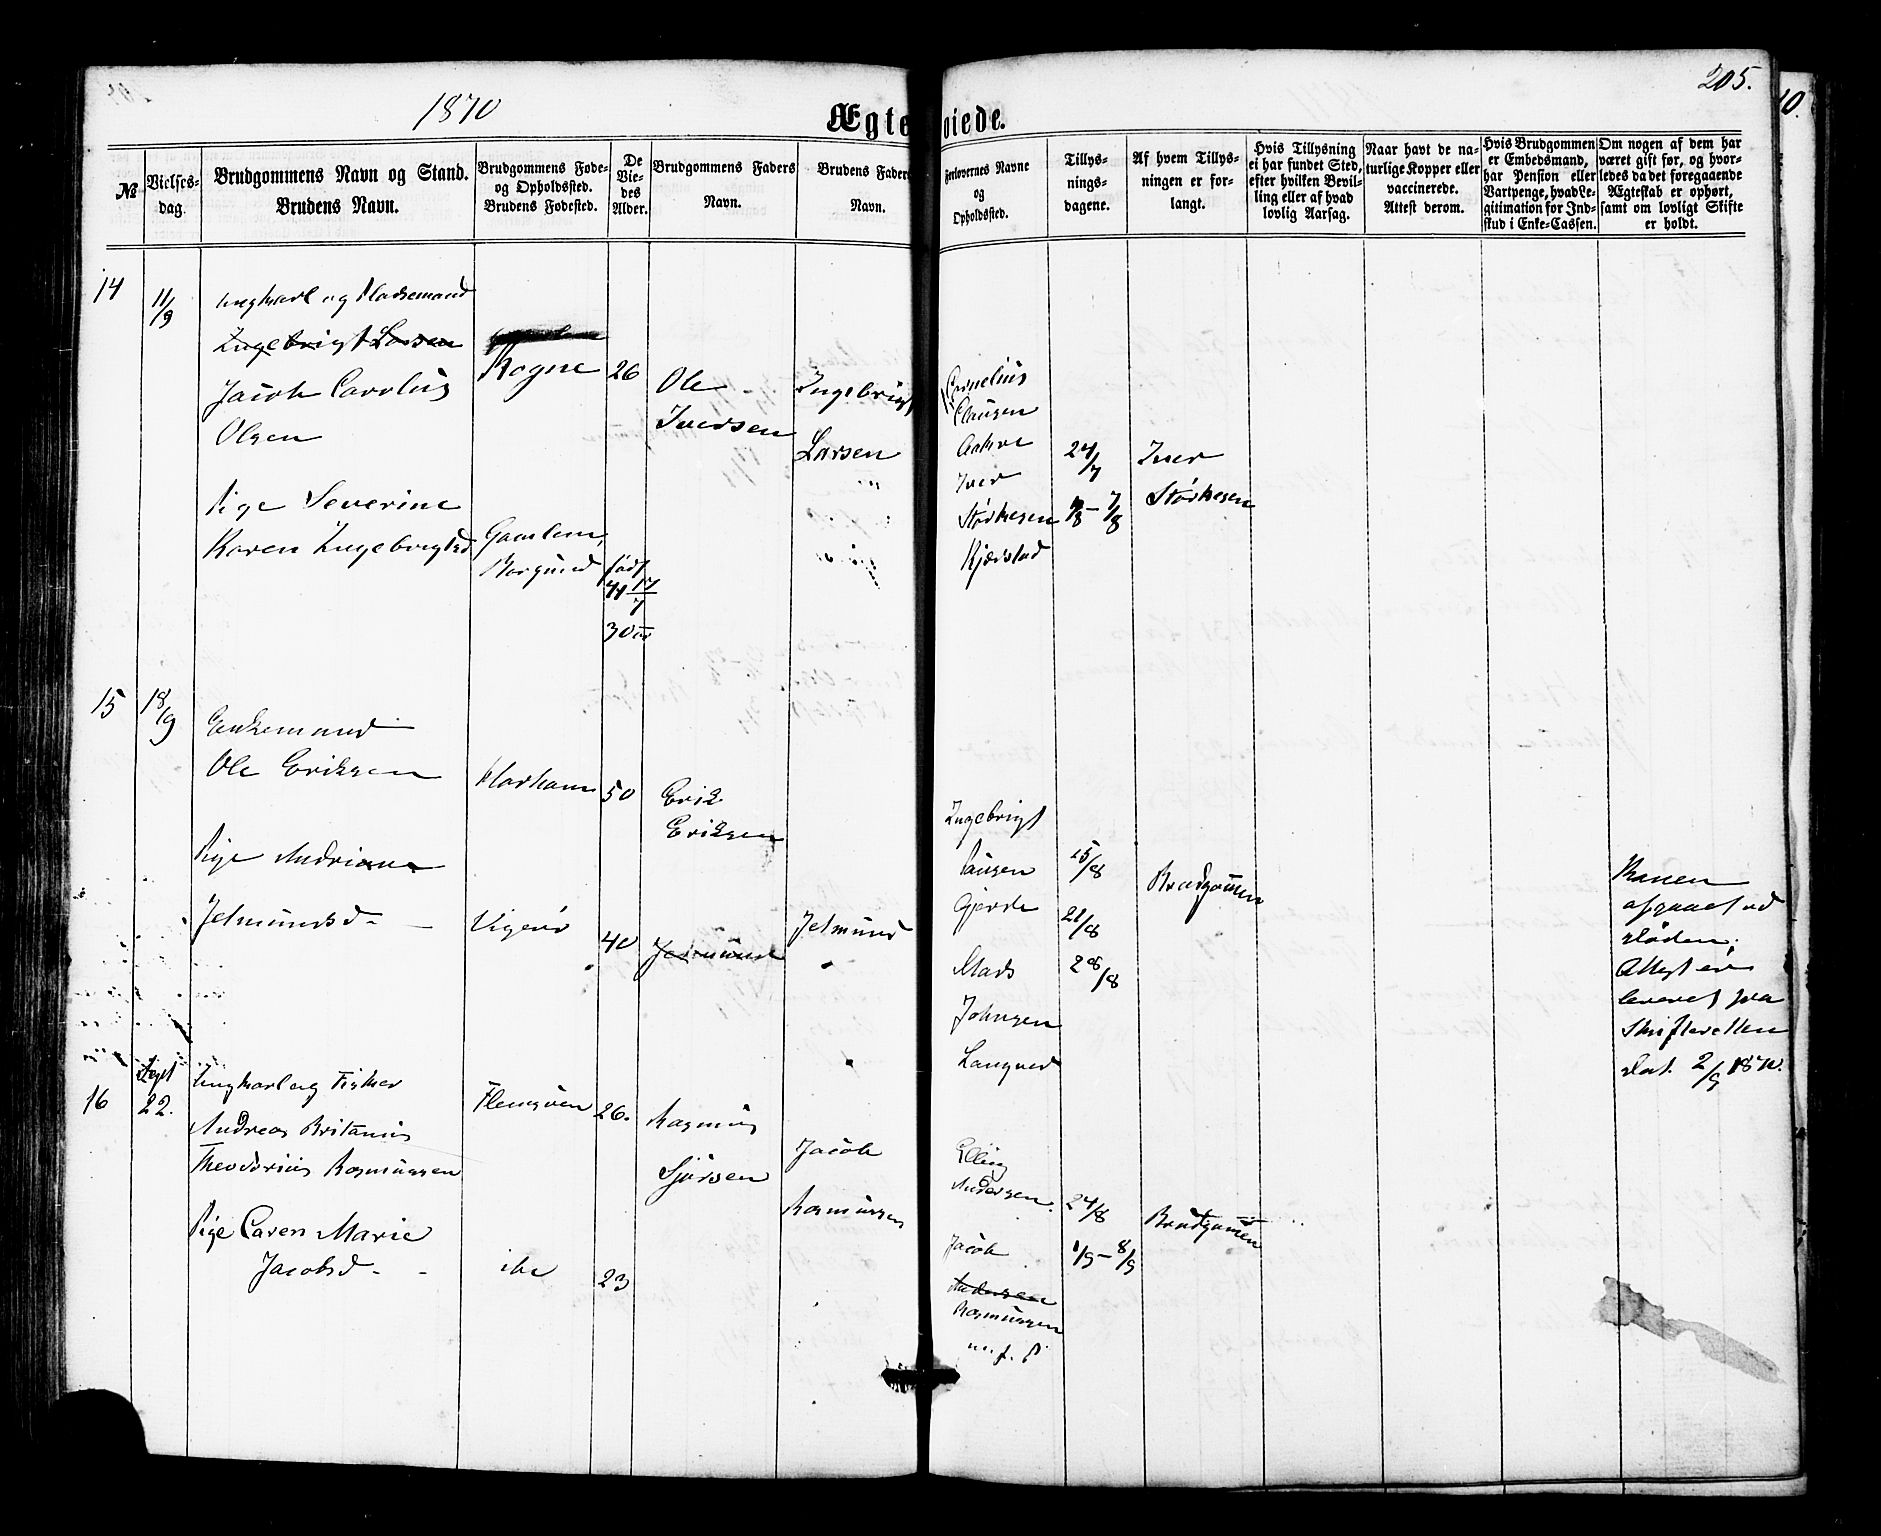 205.
1870
Ægte oiede.
№
Vielses-
dag.
Brudgommens Navn og Stand.
Brudens Navn.
Brudgommens Føde-
og Opholdssted.
Brudens Fødested.
De
Vie-
des
Alder.
Brudgommens Faders
Navn.
Brudens Faders
Navn.
Forlovernes Navne
og
Opholdssted.
Tillys-
nings-
dagene.
Af hvem Tillys-
ningen er for-
langt.
Hvis Tillysning
ei har fundet Sted,
efter hvilken Bevil-
ling eller af hvad
lovlig Aarsag.
Naar havt de na-
turlige Kopper eller
vaccinerede.
Attest derom.
Hvis Brudgommen
er Embedsmand,
har Pension eller
Vartpenge, hvad Le-
gitimation for Ind-
skud i Enke-Cassen.
Om nogen af dem har
været gift før, og hvor-
ledes da det foregaaende
Ægteskab er ophørt,
samt om lovligt Skifte
er holdt.
14
11/9
Ungkarl og Pladsemand
Ingebrigt Larsen
Jacob Carolus
Olsen
Rogne
26
Ole
Iversen
Ingebrigt
Larsen
Pige Severine
Karen Ingebrigtsd
Gamlem,
Borgund
født
41 17/7
30 aar
Cornelius
Clausen
Aakre
Iver
Størkesen
Kjærstad
24/7
1/8 – 7/8
Iver
Størkesen
15
18/9
Enkemand
Ole Eriksen
Harham
50
Erik
Eriksen
Pige Andriane
Jetmundsd –
Vigerø
40
Jetmund
Jetmund
Ingebrigt
Paulsen
Gjerde
Mads
Johnsen
Langved
15/8
21/8
28/8
Brudgommen
Konen
afgaaet ved
døden;
Attest er
leveret fra
Skifteretten
dat. 2/9 1870.
16
Sept
22.
Ungkarl og Fisker
Andreas Britanius
Theodorius Rasmussen
Flemsøen
26.
Rasmus
Sjursen
Jacob
Rasmussen
Pige Caren Marie
Jacobsd – –
ibd
23
Elling
Andersen
Jacob
Andersen
Rasmussen
24/8
1/9 – 8/9
Brudgommen